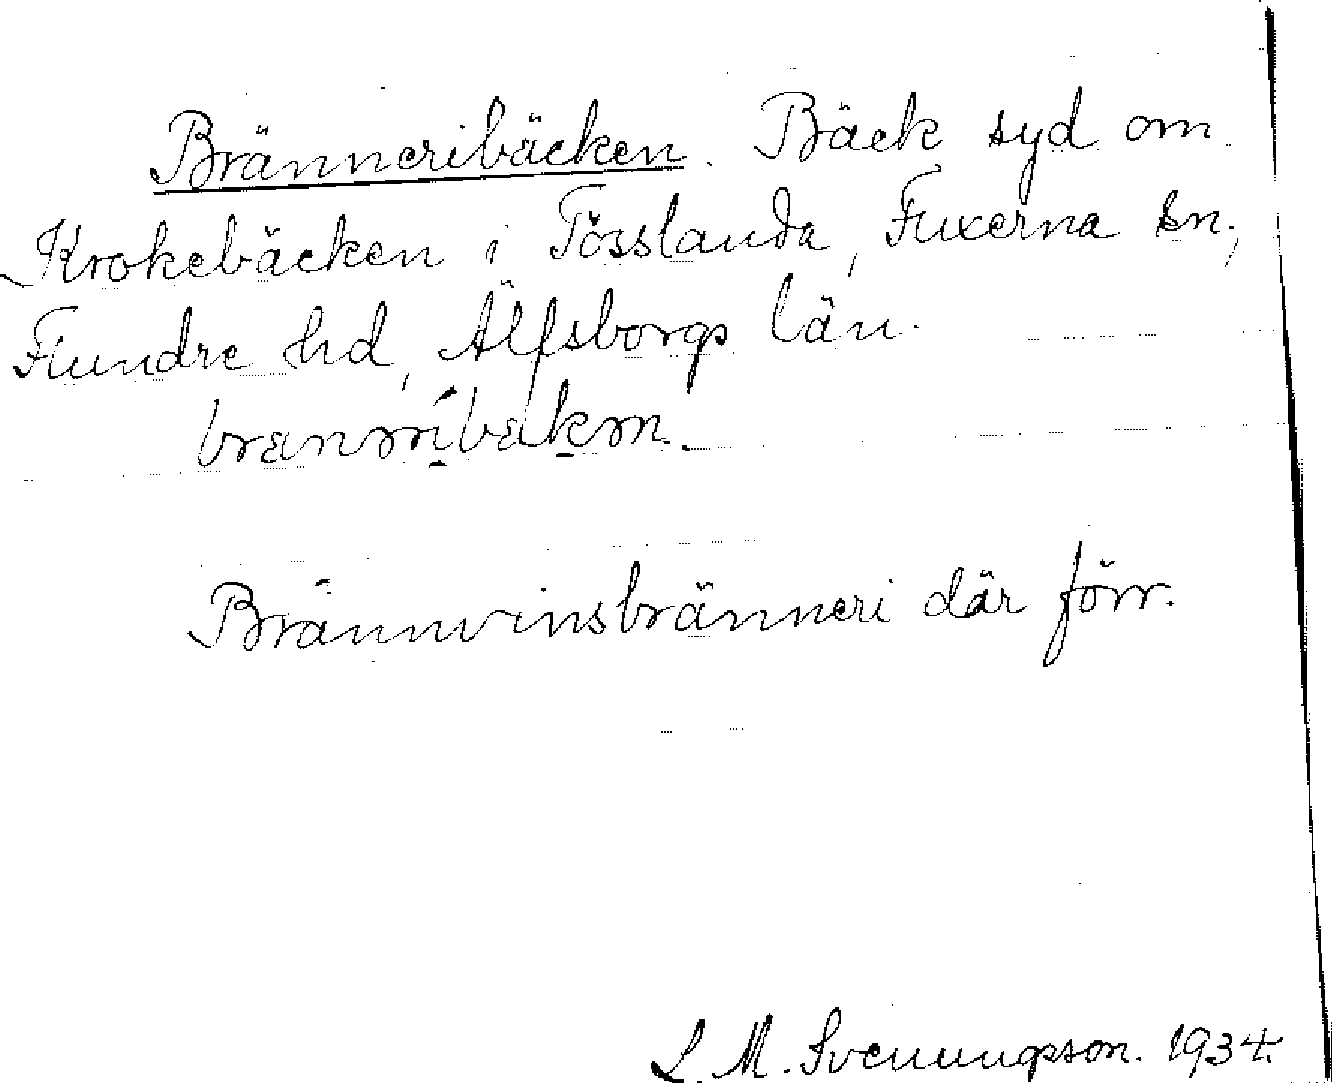 Bränneribäcken. Bäck syd om
Krokebäcken i Tösslanda, Fuxerna sn,
Flundre hd, Älfsborgs län.
Brännvinsbränneri där förr.
S. M. Svenungsson. 1934.